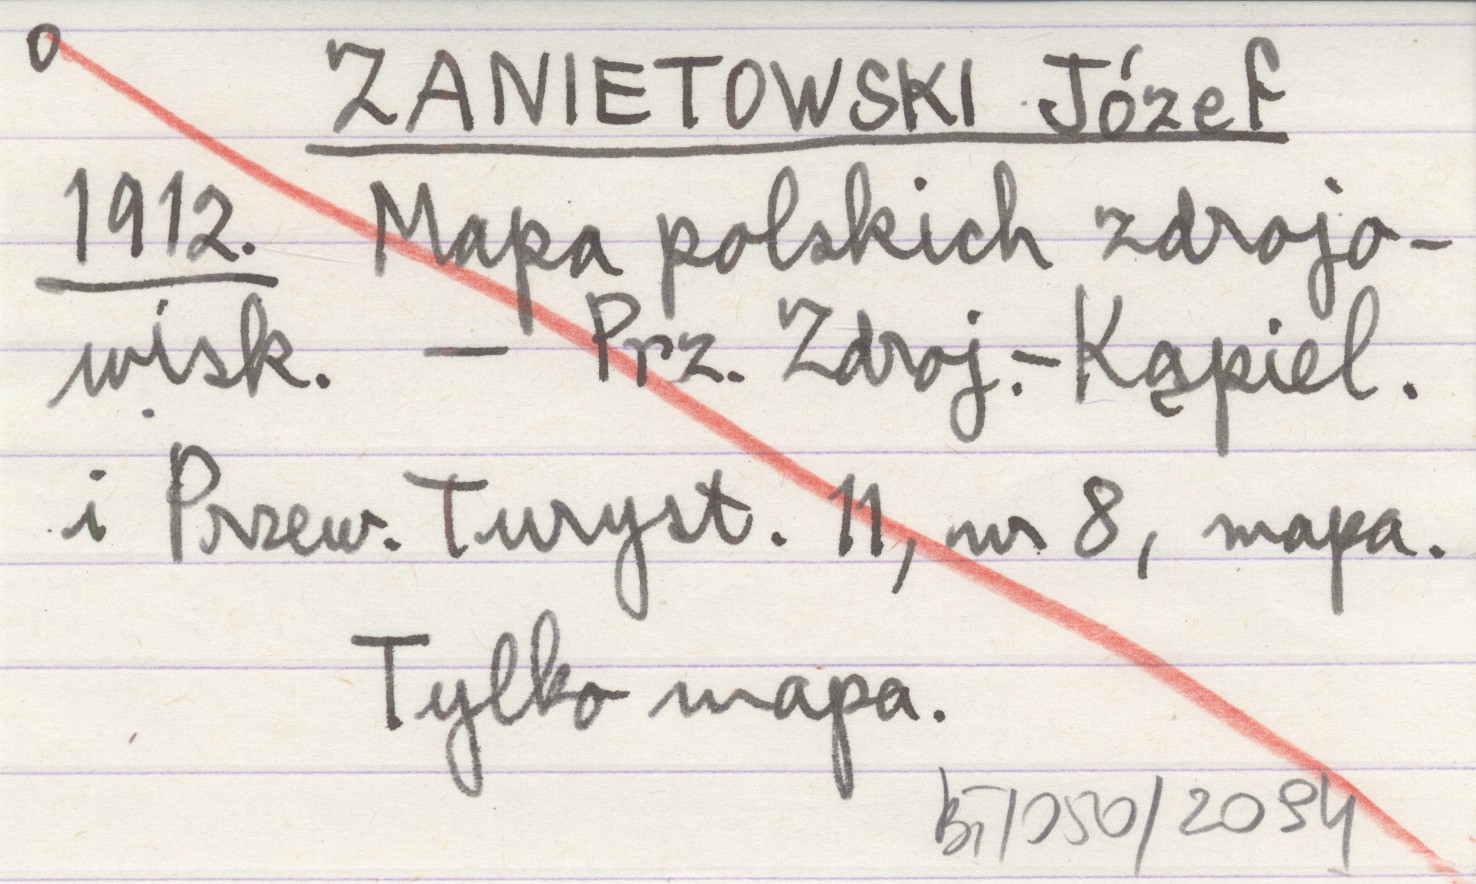 o
ZANIETOWSKI Józef
1912. Mapa polskich zdrojo-
wisk. — Prz. Zdroj.-Kąpiel.
i Przew. Turyst. 11, nr 8, mapa.
Tylko mapa.
BI/050/2094